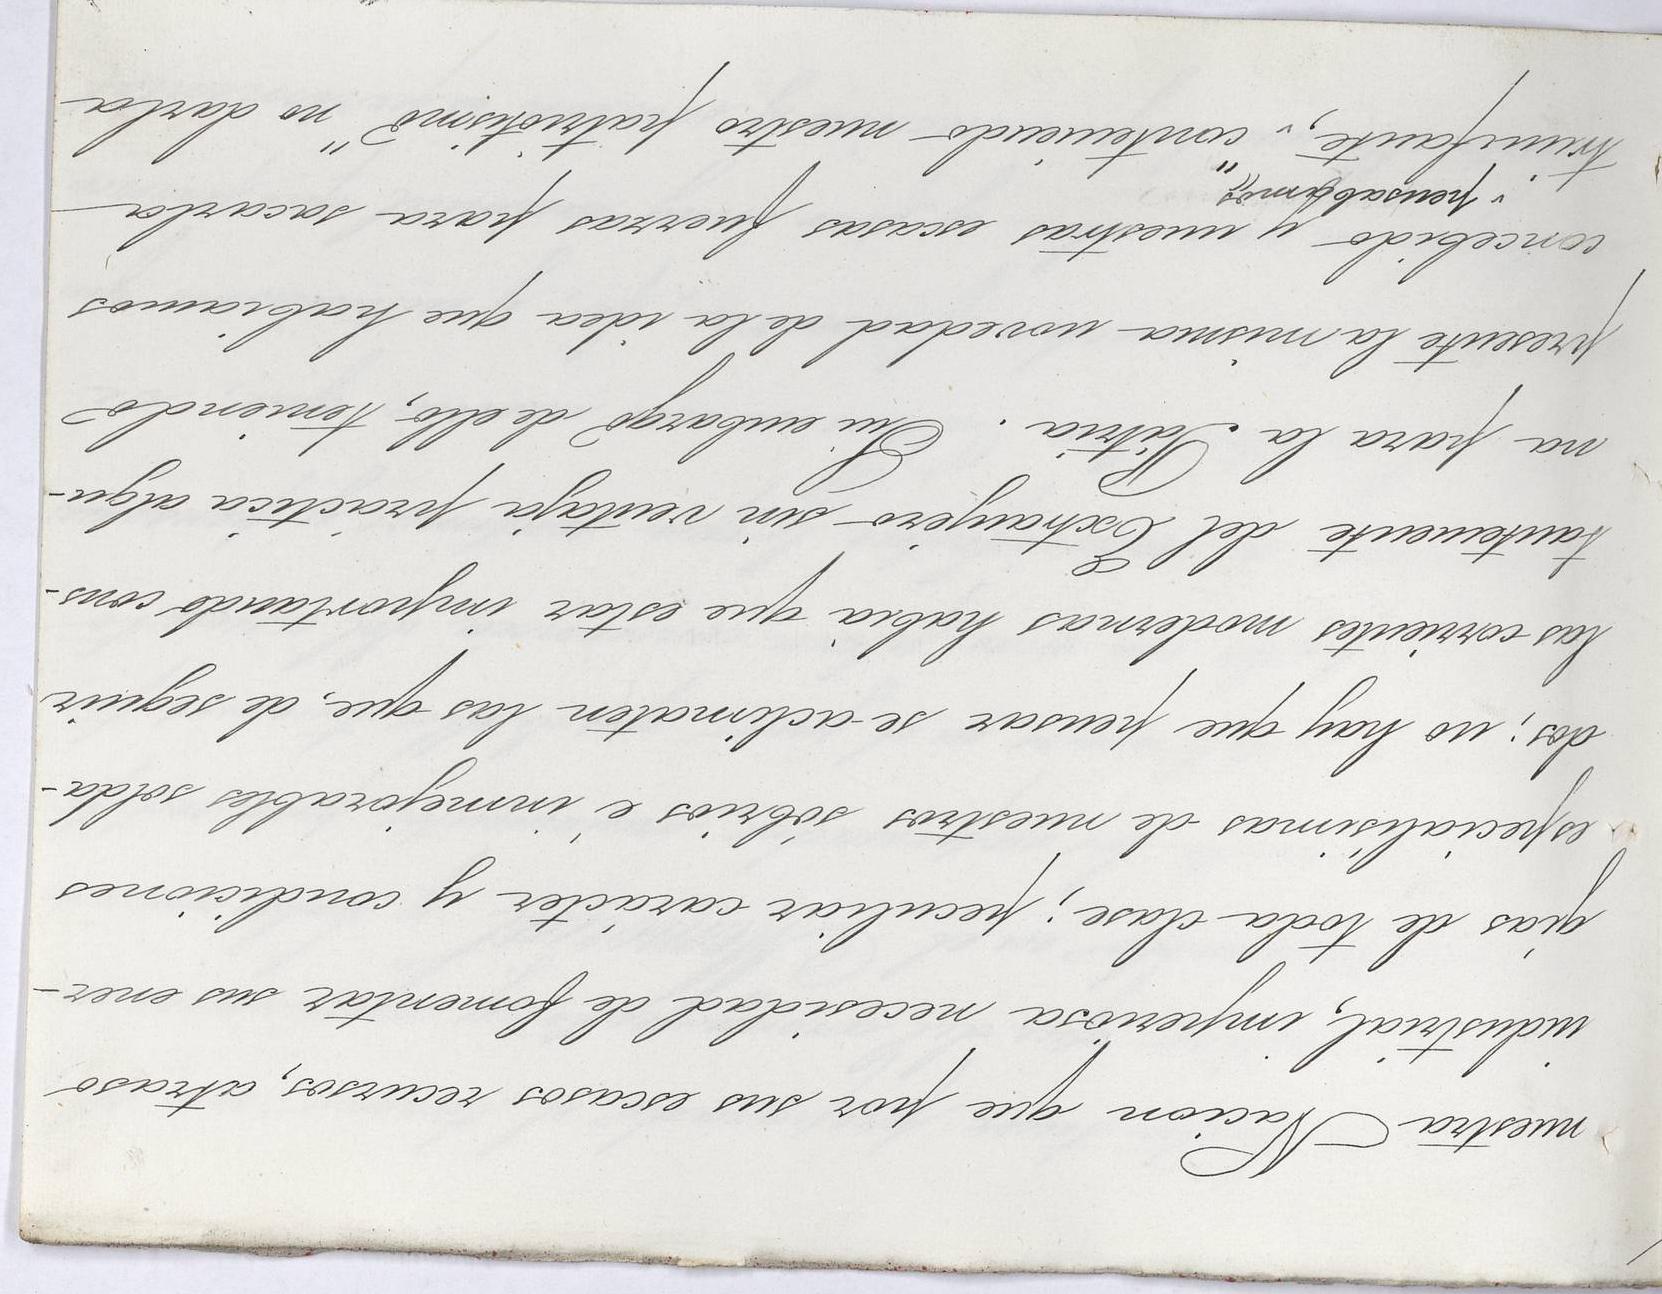 nuestra Nacion que por sus escasos recursos, atraso
industrial, imperiosa necesidad de fomentar sus ener-
gías de toda clase; peculiar carácter y condiciones
especialísimas de nuestros sóbrios é inmejorables solda-
dos; no hay que pensar se aclimaten las que, de seguir
las corrientes modernas habia que estar importando cons-
tantemente del Extranjero sin ventaja práctica algu-
na para la Pátria. Sin embargo de ello, teniendo
presente la misma novedad de la idea que habiamos
concebido y nuestras escasas fuerzas para sacarla
"pensabamos"
triunfante, " conteniendo nuestro patriotismo " no darla